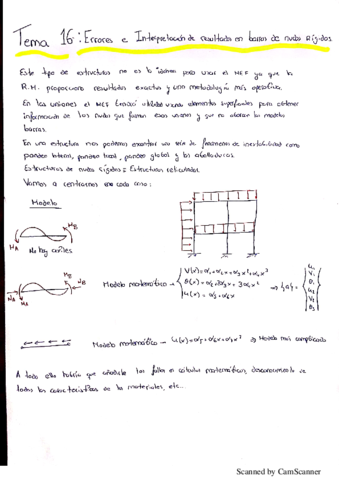 Tema 16: Errores e Interpretación de resultados en barras de nudos rígidos.
Este tipo de estructuras no es lo idóneo para usar el MEF ya que la
R.M. proporciona resultados exactos y una metodología más operativa.
En las uniones el MEF tendrá utilidad usando elementos superficiales para obtener
información de los nudos que forman esas uniones y que no aportan los modelos
barras.
En una estructura nos podemos encontrar una serie de fenómenos de inestabilidad como
pandeo lateral, pandeo local, pandeo global y las abolladuras.
Estructuras de nudos rígidos = Estructuras reticuladas.
Vamos a centrarnos en cada caso:
Modelo
MA MB
No hay axiles
NA MA MB
Modelo matemático →
V(x)=α1+α2x+α3x²+α4x³
θ(x)=α2+2α3x+3α4x²
u(x)=α5+α6x
Modelo matemático → u(x)=α1+α2x+α3x² ⇒ Modelo más complicado
A todo esto habría que añadirle los fallos en cálculos matemáticos, desconocimiento de
todas las características de los materiales, etc...
Scanned by CamScanner